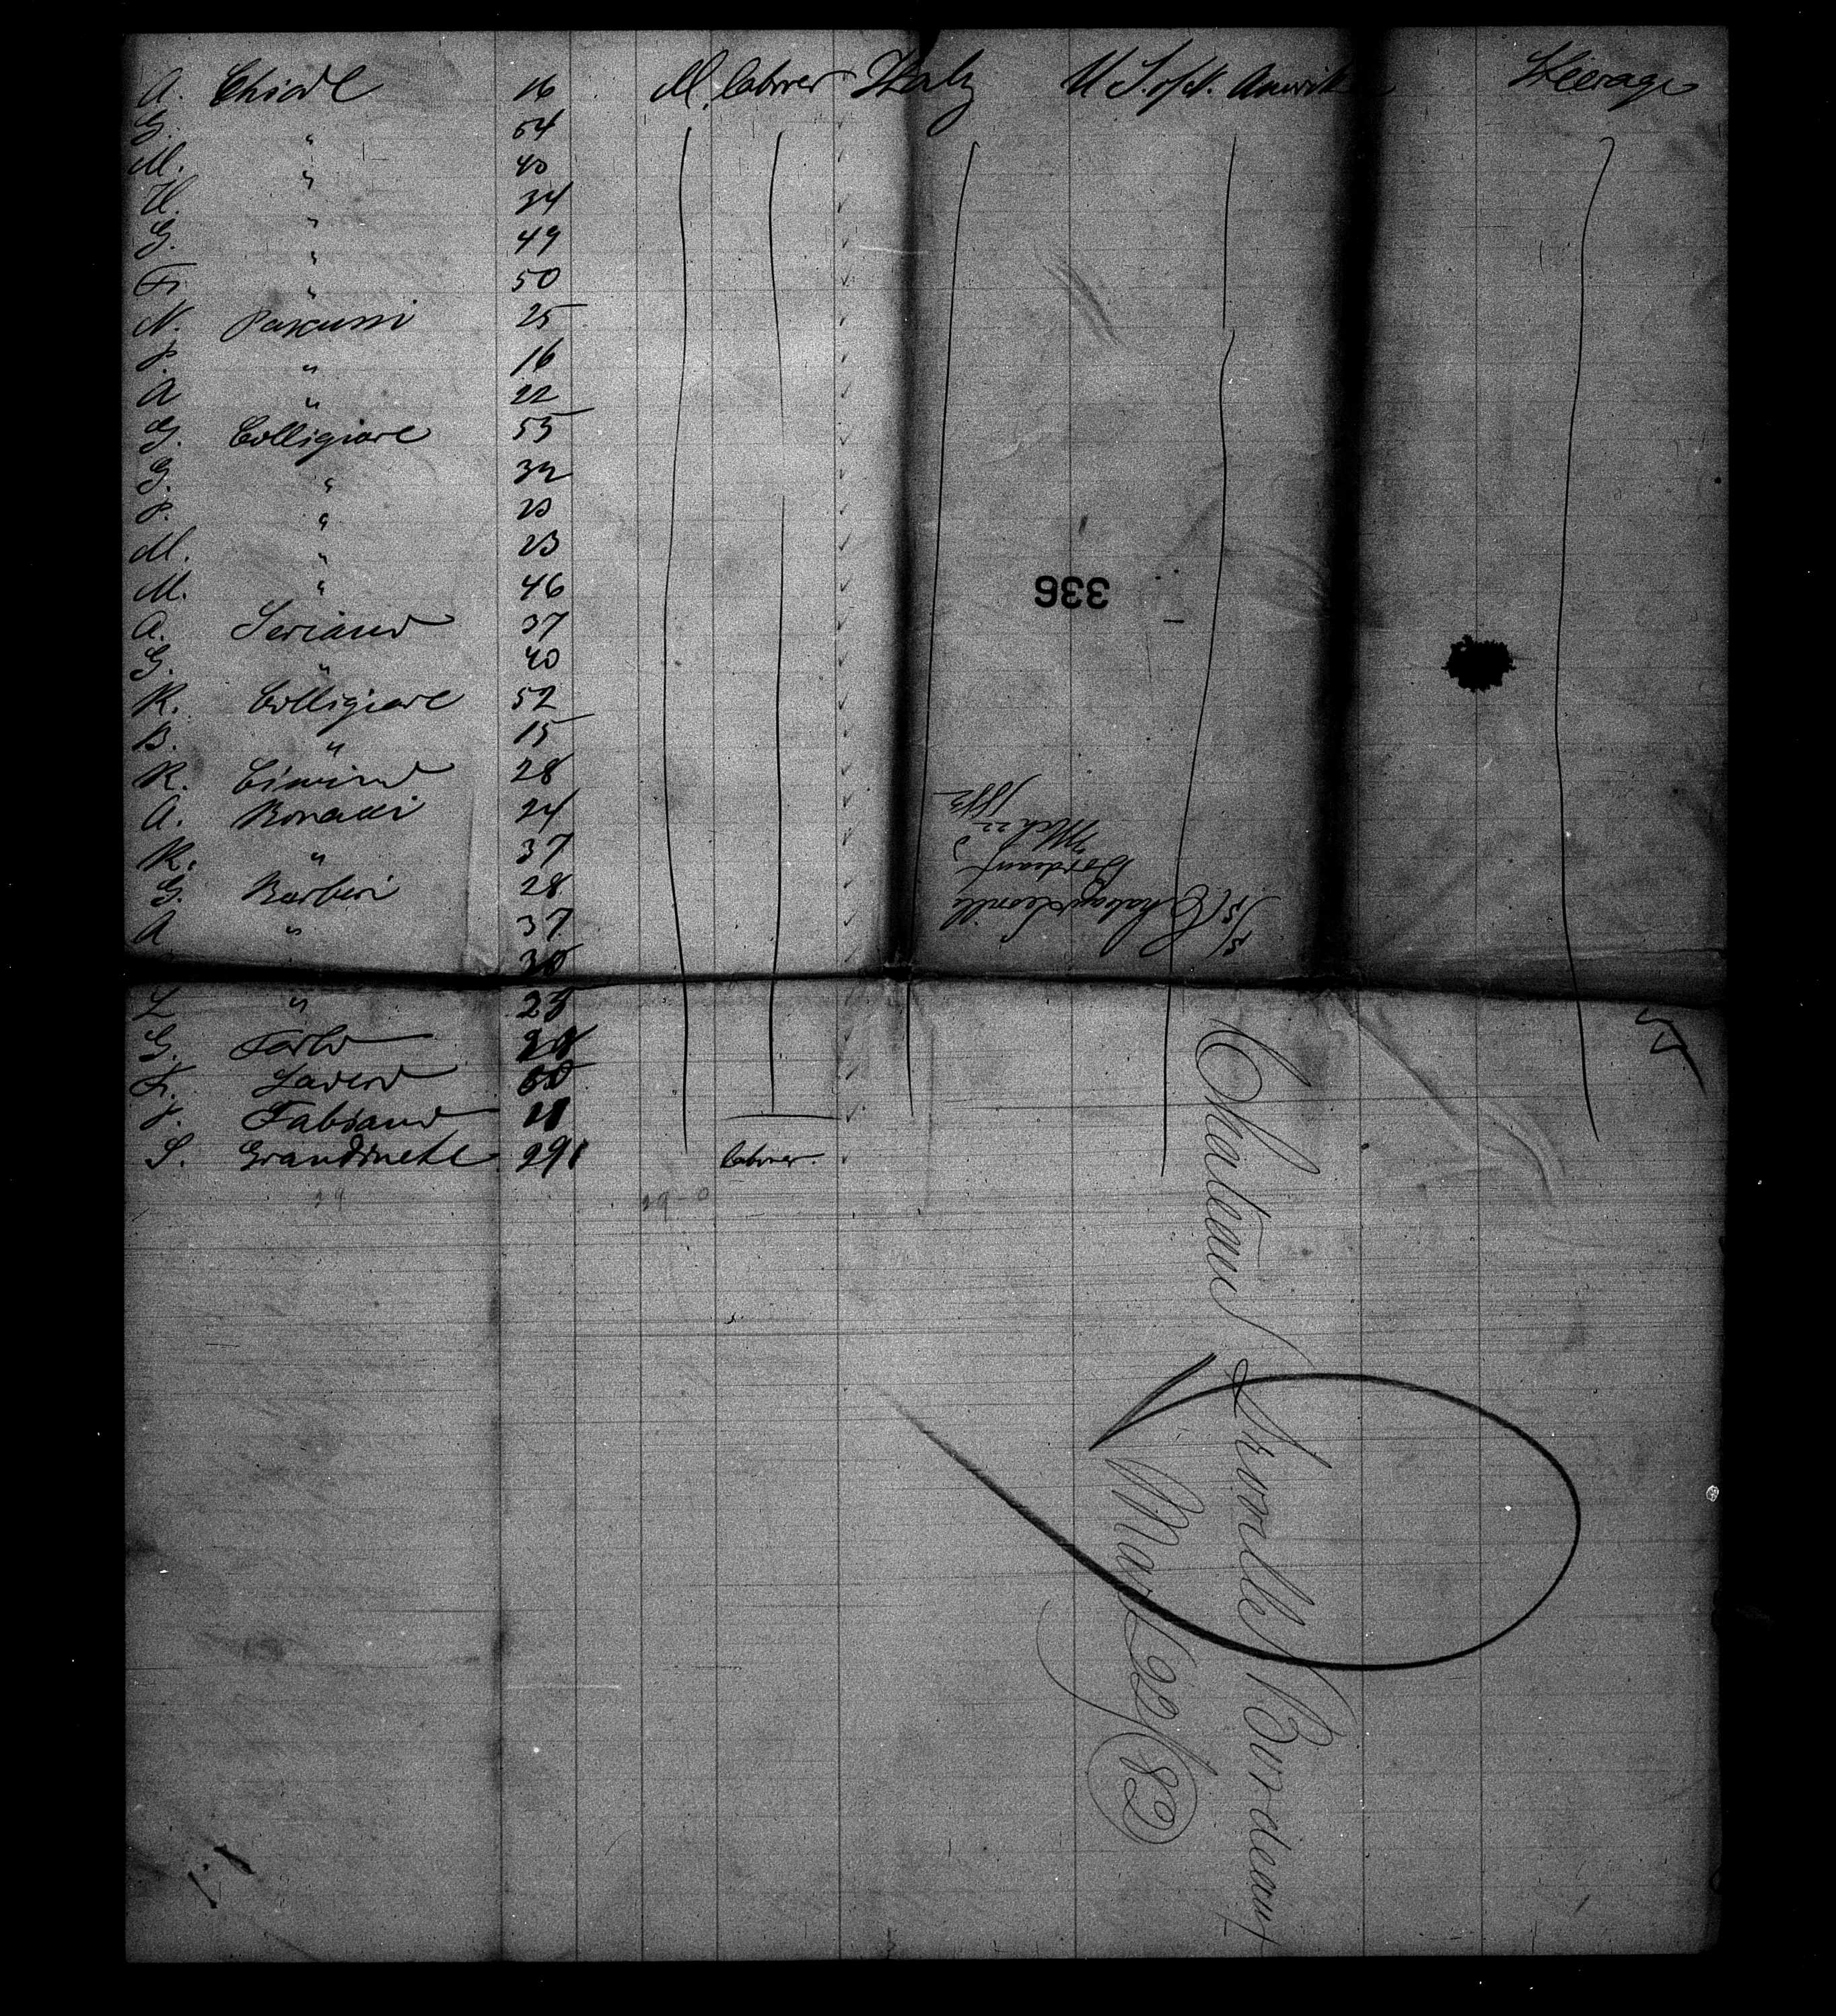 A. Chiodl 16 M. labrer Italy U.S. of N. Amerik Steerage
G. " 54
M. " 40
H. " 34
G. " 49
Fr. " 50
N. Pascussi 25
P. " 16
A " 22
G. Colligiore 55
G. " 32
P. " 23
M. " 23
M. " 46
A. Seriano 37
G. " 40
R. Colligiore 52
B. " 15
R. Cimino 28
A. Bonacci 24
R. " 37
G. Barberi 28
A " 37
30
L " 25
G. Carlo 28
Fr. Saverio 60
F. Fabiano 11
S. Grandinete 29 labrer
29 29-0
336
S/S Chateau Leoville
Bordeaux
Mch 22
1882
Chateau Leoville Bordeaux
Mar 22/82